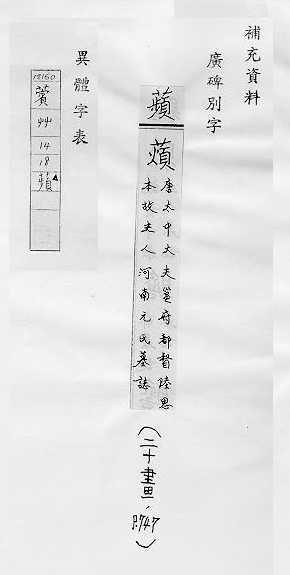 補充資料
廣碑別字
蘋
薠
唐太中大夫邕府都督陸思
本故夫人河南元氏墓誌
(二十畫、P.747)
異體字表
艸
14
18
蘋